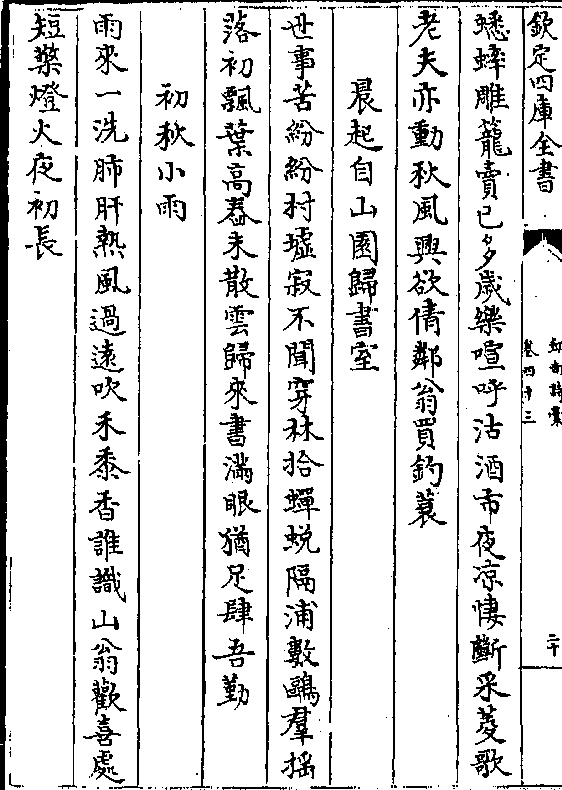 欽定四庫全書
劍南詩稾
卷四十三
二十
蟋蟀雕籠賣已多歲樂喧呼沽酒市夜凉悽斷采菱歌
老夫亦動秋風興欲倩鄰翁買釣蓑
晨起自山園歸書室
世事苦紛紛村墟寂不聞穿林拾蟬蜕隔浦數鷗羣揺
落初飄葉高舂未散雲歸來書滿眼猶足肆吾勤
初秋小雨
雨來一洗肺肝熱風過遠吹禾黍香誰識山翁歡喜處
短檠燈火夜初長